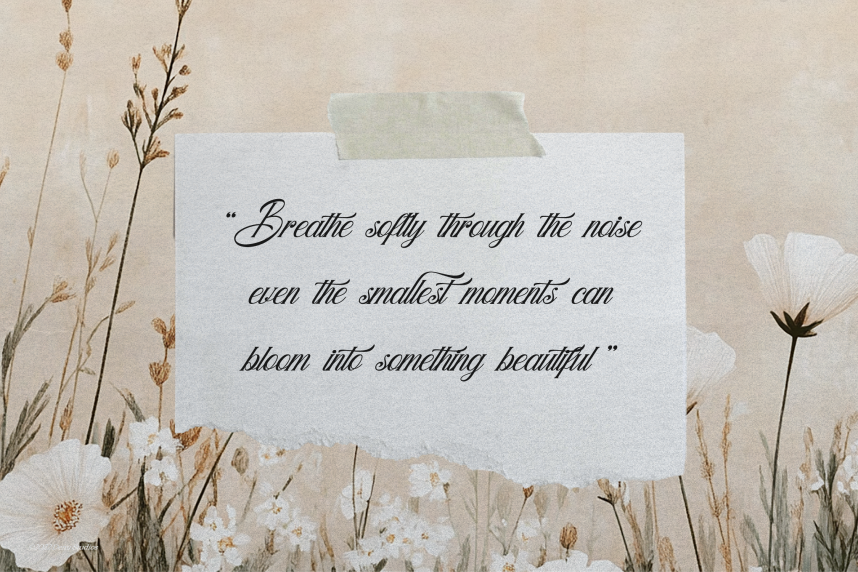 “ Breathe softly through the noise
even the smallest moments can
bloom into something beautiful ”